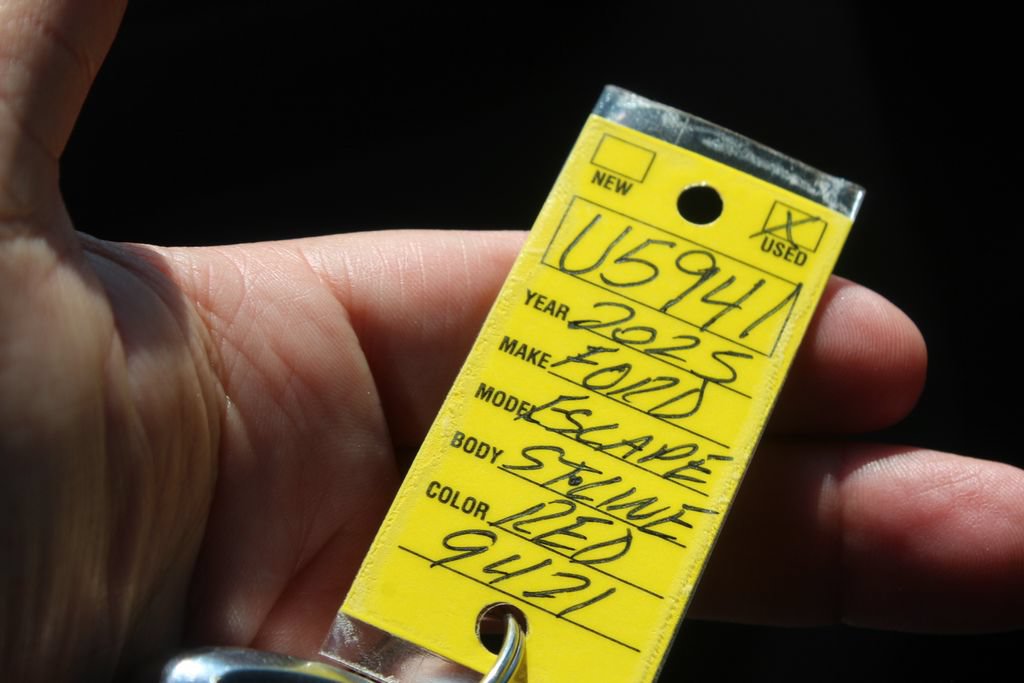 NEW
X
USED
U5941
YEAR 2025
MAKE FORD
MODEL ESCAPE
BODY ST.LINE
COLOR RED
9421